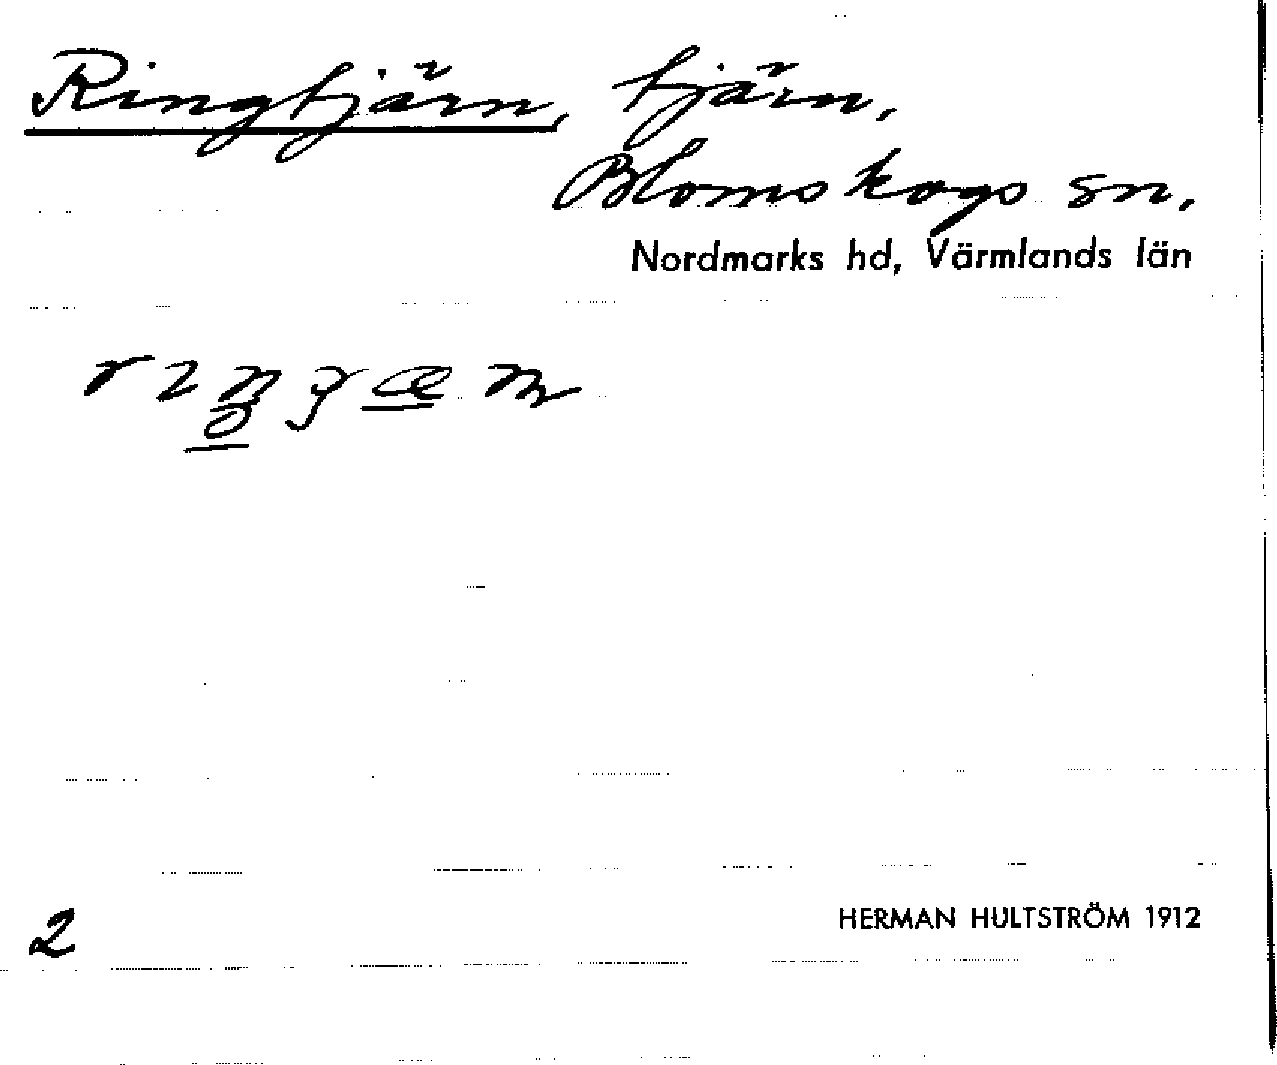 Ringtjärn, tjärn,
Blomskogs sn,
Nordmarks hd, Värmlands län
2
HERMAN HULTSTRÖM 1912